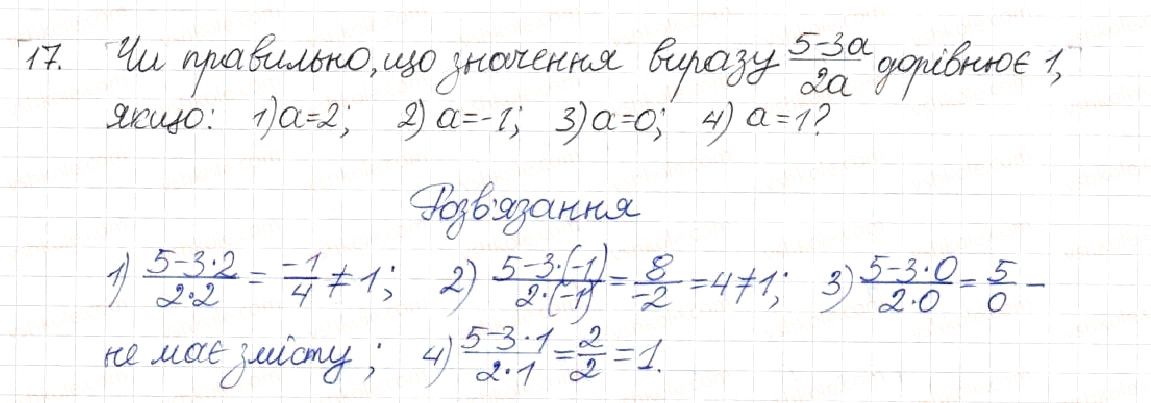 17. Чи правильно, що значення виразу (5-3a)/(2a) дорівнює 1,
якщо: 1) a=2; 2) a=-1; 3) a=0; 4) a=1?
Розв'язання
1) (5-3·2)/(2·2) = (-1)/4 ≠ 1; 2) (5-3·(-1))/(2·(-1)) = 8/(-2) = 4 ≠ 1; 3) (5-3·0)/(2·0) = 5/0 -
не має змісту; 4) (5-3·1)/(2·1) = 2/2 = 1.